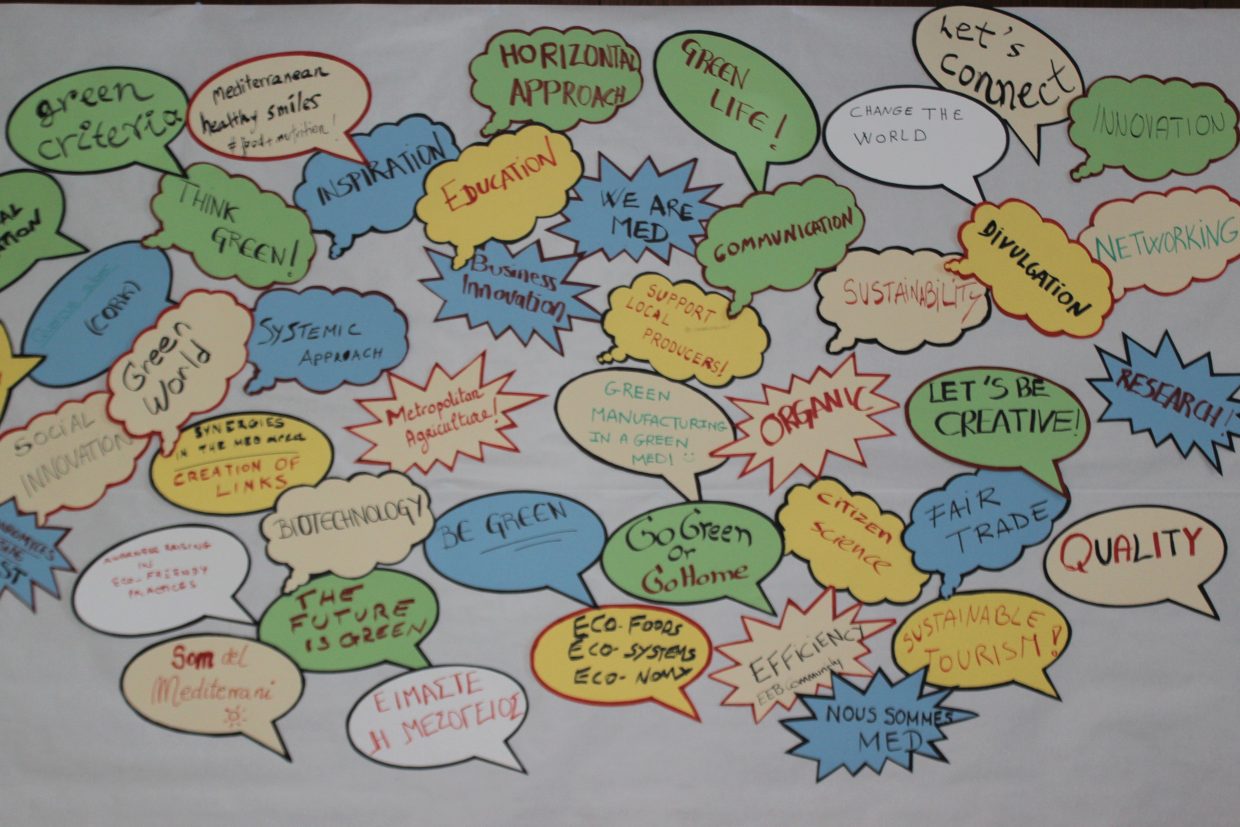 green
criteria
Mediterranean
healthy smiles
HORIZONTAL
APPROACH
GREEN
LIFE!
Let's
Connect
CHANGE THE
WORLD
INNOVATION
THINK
GREEN!
INSPIRATION
EDUCATION
WE ARE
MED
COMMUNICATION
SUSTAINABILITY
DIVULGATION
NETWORKING
(CORK)
Green
World
SYSTEMIC
APPROACH
Business
Innovation
SUPPORT
LOCAL
PRODUCERS!
SOCIAL
INNOVATION
SYNERGIES
IN THE MED AREA
CREATION OF
LINKS
Metropolitan
Agriculture!
GREEN
MANUFACTURING
IN A GREEN
MED!
ORGANIC
LET'S BE
CREATIVE!
RESEARCH!
BIOTECHNOLOGY
BE GREEN
Go Green
or
Go Home
CITIZEN
SCIENCE
FAIR
TRADE
QUALITY
AWARENESS RAISING
ECO-FRIENDLY
PRACTICES
THE
FUTURE
IS GREEN
Som del
Mediterrani
ΕΙΜΑΣΤΕ
Η ΜΕΣΟΓΕΙΟΣ
ECO-FOODS
ECO-SYSTEMS
ECO-NOMY
EFFICIENCY
EEB community
SUSTAINABLE
TOURISM!
NOUS SOMMES
MED